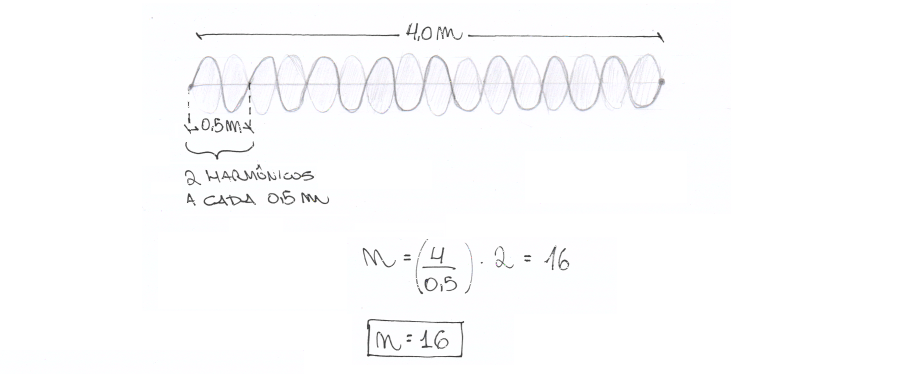 4,0 m
0,5 m
2 HARMÔNICOS
A CADA 0,5 m
n = (4/0,5) . 2 = 16
n = 16